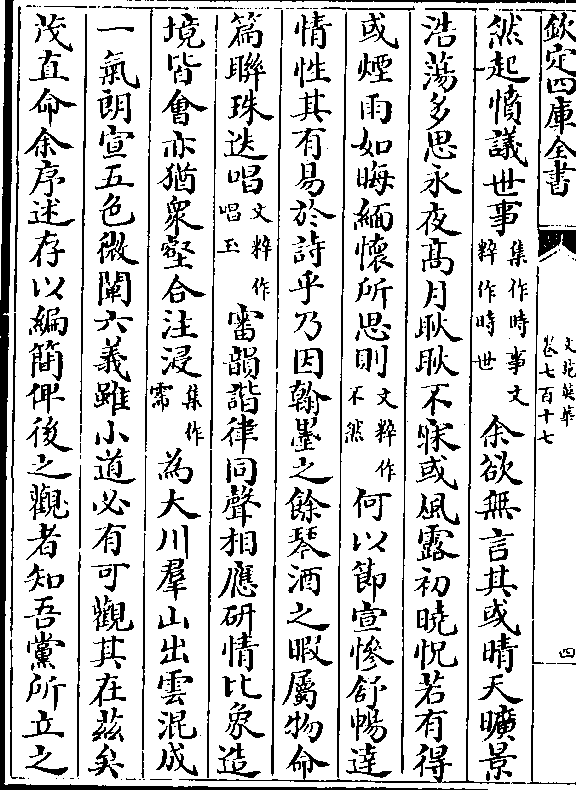 欽定四庫全書
文苑英華
卷七百十七
四
然起憤議世事集作時事文粹作時世余欲無言其或晴天曠景
浩蕩多思永夜高月耿耿不寐或風露初曉怳若有得
或煙雨如晦緬懷所思則文粹作不然何以節宣慘舒暢達
情性其有易於詩乎乃因翰墨之餘琴酒之暇屬物命
篇聯珠迭唱文粹作唱玉審韻諧律同聲相應研情比象造
境皆會亦猶衆壑合注浸集作霈為大川羣山出雲混成
一氣朗宣五色微闡六義雖小道必有可觀其在茲矣
茂直命余序述存以編簡俾後之觀者知吾黨所立之